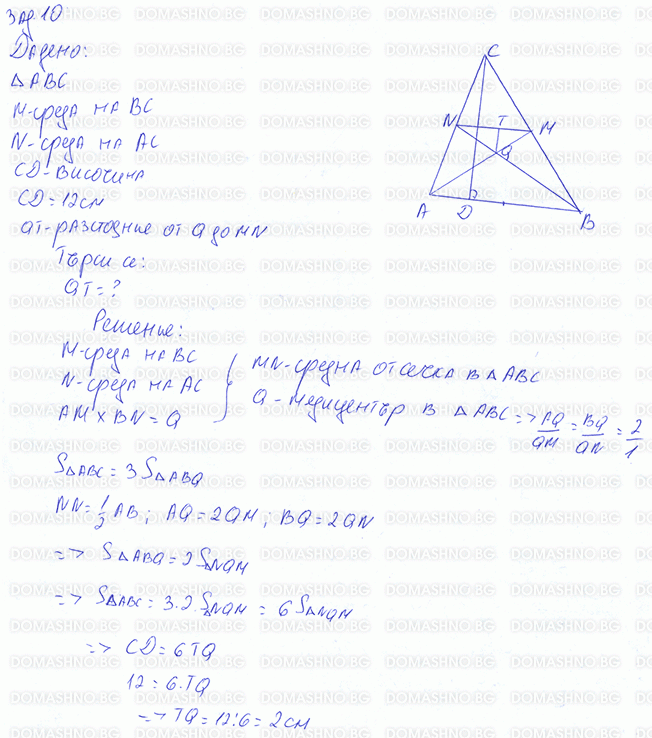 Зад 10
Дадено:
△ABC
M-среда на BC
N-среда на AC
CD-височина
CD=12см
QT-разстояние от Q до MN
Търси се:
QT=?
Решение:
M-среда на BC
N-среда на AC
AM x BN = Q
MN-средна отсечка в △ABC
Q - медицентър в △ABC => AQ/QM = BQ/QN = 2/1
S△ABC = 3 S△ABQ
NN = 1/2 AB ; AQ = 2QM ; BQ = 2QN
=> S△ABQ = 2 S△NQM
=> S△ABC = 3.2.S△NQM = 6 S△NQM
=> CD = 6TQ
12 = 6.TQ
=> TQ = 12:6 = 2см
C
N
T
M
Q
A
D
B
DOMASHNO.BG